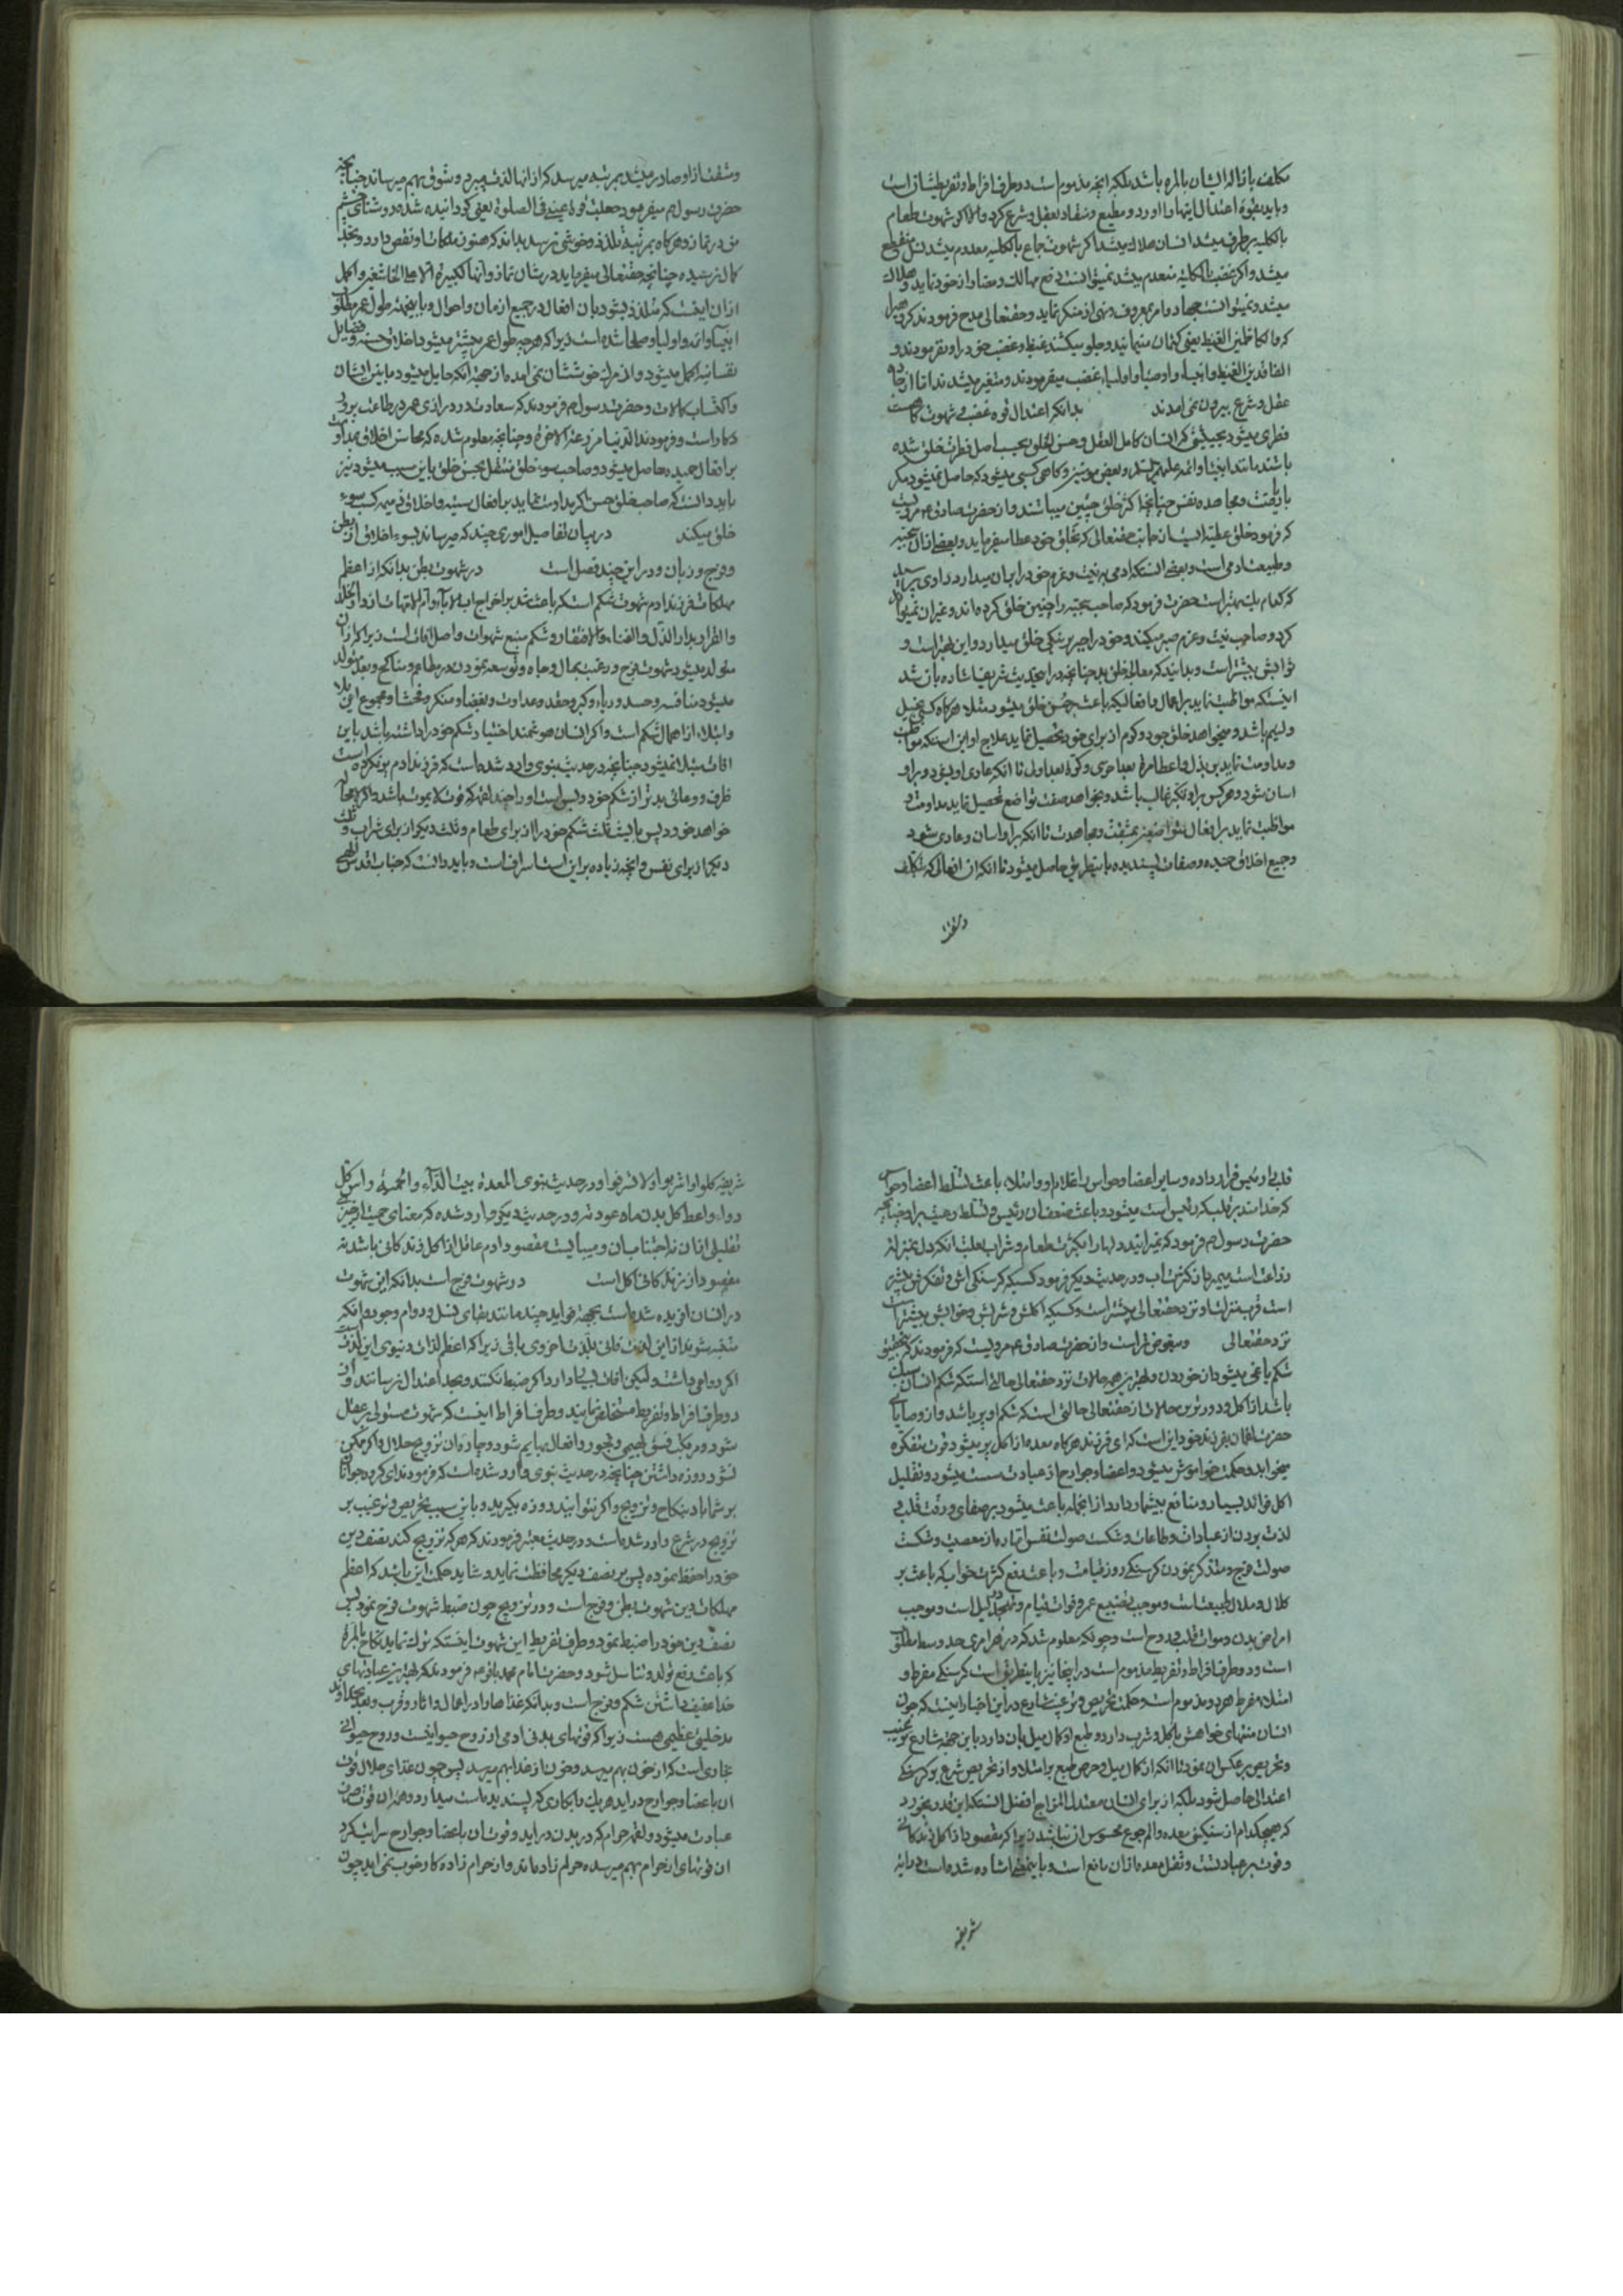 مکلف بازاله ایشان بالمره باشد بلکه آنچه مذموم است دو طرف افراط و تفریطشان است
و باید بقوه اعتدال اینها را آورد و مطیع و منقاد بعقل و شرع کرد والا اکر شهوت طعام
بالکلیه برطرف میشد انسان هلاک میشد اکر شهوت جماع بالکلیه معدوم میشد نسل منقطع
میشد و اکر غضب بالکلیه منعدم میشد نمیتوانست دفع مهالک و مضار از خود نماید و هلاک
میشد و نمیتوانست جهاد و امر بمعروف و نهی از منکر نماید و حقتعالی مدح فرمودند
که والکاظمین الغیظ یعنی کتمان مینمایند و جلو میکشند غیظ و غضب خود را و نفرمودند و
الفاقدین الغیظ و انبیاء و اوصیاء و اولیاء غضب میفرمودند و متغیر میشدند اما از
عقل و شرع بیرون نمی آمدند بدانکه اعتدال قوه غضب و شهوت کاهست
فطری میشود بحیثیتی که انسان کامل العقل و حسن الخلق بحسب اصل فطرت خلق شده
باشد مانند انبیا و ائمه علیهم السلام و بعض مومنین و کاهی کسبی میشود که حاصل نمیشود مکر
بریاضت و مجاهده نفس چنانچه اکثر خلق چنین میباشند و از حضرت صادق ع مرویست
که فرمود خلق عطیه ایست از جانب حقتعالی که بخلق خود عطا میفرماید و بعضی از آن
و طبیعت آدمی است و بعضی آنستکه آدمی به نیت و عزم خود را بران میدارد راوی
که کدام یک بهتر است حضرت فرمود که صاحب سجیه را چنین خلق کرده اند و غیر آن نمیتواند
کرد و صاحب نیت و عزم صبر میکند و خود را بجبر بر نیکی خلق میدارد و این بهتر است و
ثوابش بیشتر است و بدانید که معالجه خلق بد چنانچه در این حدیث شریف اشاره بان شد
اینستکه مواظبت نماید بر اعمال و افعالیکه باعث حسن خلق میشود مثلا هرکاه کسی بخیل
و لئیم باشد و میخواهد خلق جود و کرم از برای خود تحصیل نماید علاج او این استکه مواظبت
و مداومت نماید بر بذل و اعطا مرة بعد اخری و کرة بعد اولی تا آنکه عادی او بشود و بر او
آسان شود و هر کس بر او تکبر غالب باشد و بخواهد صفت تواضع تحصیل نماید مداومت و
مواظبت نماید بر افعال متواضعین بمشقت و مجاهدت تا آنکه بر او آسان و عادی شود
و جمیع اخلاق حمیده و صفات پسندیده باینطریق حاصل میشود تا آنکه آن افعالی که بتکلف
و مشقت
و مشقت از او صادر میشد بمرتبه میرسد که از انها لذت میبرد و شوق بهم میرساند چنانچه
حضرت رسول ص میفرمود جعلت قرة عینی فی الصلوة یعنی کردانیده شده روشنائی چشم
من در نماز و هرکاه بمرتبه تلذذ و خوشی نرسد بداند که هنوز ملکات او نقص دارد و بحد
کمال نرسیده چنانچه حقتعالی میفرماید در شان نماز و انها لکبیرة الا علی الخاشعین و اکمل
از آن اینست که متلذذ بشود بان افعال در جمیع ازمان و احوال و باینجهت طول عمر مطلوب
انبیا و ائمه و اولیا و صلحا شده است زیرا که هرچه طول عمر بیشتر میشود اخلاق حسنه و فضایل
نفسانیه اکمل میشود و از مرک خوششان نمی آمده از جهة آنکه حایل میشود مابین ایشان
و اکتساب کمالات و حضرت رسول ص فرمودند که سعادت در درازی عمر در طاعت پرورد
کار است و فرمودند الدنیا مزرعة الاخرة و چنانچه معلوم شده که محاسن اخلاق بمداومت
بر افعال حمیده حاصل میشود و صاحب سوء خلق منتقل بحسن خلق باین سبب میشود نیز
باید دانست که صاحب خلق حسن اکر مداومت نماید بر افعال سیئه و اخلاق ذمیمه کسب سوء
خلق میکند در بیان تفاصیل اموری چند که میرساند بسوء اخلاق از بطن
و فرج و زبان و در این چند فصل است در شهوت بطن بدانکه از اعظم
مهلکات فرزند آدم شهوت شکم است که باعث شد بر اخراج اب الاباء و ام الامهات از دار الخلد
و القرار بدار الذل و الفناء و الافتقار و شکم منبع شهوات و اصل آفات است زیرا که از آن
متولد میشود شهوت فرج و رغبت بمال و جاه و توسعه نمودن در مطاعم و مناکح و بعد متولد
میشود منافسه و حسد و ریاء و کبر و حقد و عداوت و بغضا و منکر و فحشا و مجموع این بلا
و ابتلاء از اهمال شکم است و اکر انسان هوشمند اختیار شکم خود را داشته باشد باین
آفات مبتلا نمیشود چنانچه در حدیث نبوی وارد شده است که فرزند آدم پر نکرده است
ظرف و وعائی بدتر از شکم خود و بس است او را چند لقمه که قوت لایموت باشد و اکر لامحاله
خواهد خورد پس بایست ثلث شکم خود را از برای طعام و ثلث دیکر از برای شراب و ثلث
دیکر از برای نفس و آنچه زیاده بر این است اسراف است و باید دانست که جناب اقدس الهی
قلب را رئیس قرار داده و سایر اعضا و حواس را غلام او و امتلاء باعث تسلط اعضا و حواس
که خدامند بر قلب که رئیس است میشود و باعث ضعف آن رئیس و تسلط رعیت بر او چنانچه
حضرت رسول ص فرمود که نمیرانید دلها را بکثرت طعام و شراب بعلت آنکه دل بمنزله
زراعت است میمیرد از کثرت آب و در حدیث دیکر فرمود کسیکه کرسنکی اش و تفکرش بیشتر
است قرب منزلت او نزد حقتعالی بیشتر است و کسیکه اکلش و شربش و خوابش بیشتر است
نزد حقتعالی مبغوض تر است و از حضرت صادق ع مرویست که فرمودند که بتحقیق
شکم یاغی میشود از خوردن و بهترین همه حالات نزد حقتعالی حالتی استکه شکم انسان سبک
باشد از اکل و دورترین حالات از حقتعالی حالتی است که شکم او پر باشد و از وصایای
حضرت لقمان بفرزند خود این است که ای فرزند هرکاه معده از اکل پر میشود قوت متفکره
میخوابد و حکمت خواموش میشود و اعضا و جوارح از عبادت سست میشود و تقلیل
اکل فوائد بسیار و منافع بیشمار دارد از انجمله باعث میشود بر صفای و رقت قلب و
لذت بردن از عبادات و طاعات و شکست صولت نفس اماره از معصیت و شکست
صولت فرج و متذکر نمودن کرسنکی روز قیامت و باعث دفع کثرت خواب که باعث بر
کلال و ملال طبیعت است و موجب تضییع عمر و فوات قیام و تهجد لیل است و موجب
امراض بدن و موات قلب و روح است و چونکه معلوم شد که در هر امری حد وسط مطلوب
است و دو طرف افراط و تفریط مذموم است در اینجا نیز باینطریق است کرسنکی مفرط و
امتلاء مفرط هر دو مذموم است و حکمت تحریص و ترغیب شارع در این اخبار اینست که چون
انسان منتهای خواهش باکل و شرب دارد و طبع او کمال میل بان دارد باین جهة شارع ترغیب
و تحریص بر عکس آن نمود تا آنکه از کمال میل و حرص طبع بر امتلاء و از تحریص شرع بر کرسنکی
اعتدالی حاصل شود بلکه از برای انسان معتدل المزاج افضل آنستکه این قدر بخورد
که هیچکدام از سنکینی معده و الم جوع محسوس او نباشد زیرا که مقصود از اکل زندکانی
و قوت بر عبادتست و ثقل معده از آن مانع است و باینمعنی اشاره شده است در آیه
شریفه
شریفه کلوا و اشربوا و لا تسرفوا و در حدیث نبوی المعدة بیت الداء و الحمیة راس کل
دواء و اعط کل بدن ما عودته و در حدیث دیکر وارد شده که معنای حمیت از چیزی
تقلیل از آن نه اجتناب از آن و میبایست مقصود آدم عاقل از اکل زندکانی باشد نه
مقصود از زندکانی اکل است در شهوت فرج است بدانکه این شهوت
در انسان آفریده شده است بجهة فواید چند مانند بقای نسل و دوام وجود و آنکه
متنبه شوند از این لذت فانی بلذت اخروی باقی زیرا که اعظم لذات دنیوی این لذت است
اکر دوامی داشت و لیکن آفات بسیار دارد اکر ضبط نکنند و بحد اعتدال نرسانند و از
دو طرف افراط و تفریط مستخلص نمایند و طرف افراط اینست که شهوت مستولی بر عقل
شود و مرتکب فسق و فجور و افعال بهایم شود و چاره آن تزویج حلال و اکر ممکن
نشود روزه داشتن چنانچه در حدیث نبوی وارد شده است که فرمودند ای کروه جوانان
بر شما باد بنکاح و تزویج و اکر نتوانید روزه بکیرید و باین سبب تحریص و ترغیب بر
تزویج در شرع وارد شده است و در حدیث معتبر فرمودند که هر که تزویج کند نصف دین
خود را حفظ نموده پس بر نصف دیکر محافظت نماید و شاید حکمت این باشد که اعظم
مهلکات دین شهوت بطن و فرج است و در تزویج چون ضبط شهوت فرج نمود پس
نصف دین خود را ضبط نمود و طرف تفریط این شهوت اینستکه ترک نماید نکاح بالمره
که باعث دفع تولد و تناسل شود و حضرت امام محمد باقر ع فرمودند که بهترین عبادتهای
خدا عفیف داشتن شکم و فرج است و بدانکه غذاها را در اعمال و آثار و قرب و بعد بخداوند
مدخلیتی عظیمی هست زیرا که قوتهای بدنی آدمی از روح حیوانیست و روح حیوانی
بخاری است که از خون بهم میرسد و خون از غذا بهم میرسد پس چون غذای حلال قوت
آن باعضا و جوارح درآید هر یک را بکاری که پسندیده است میدارد و همه آن قوت صرف
عبادت میشود و لقمه حرام که در بدن درآید و قوت آن باعضا و جوارح سرایت کرد
آن قوتهای از حرام بهم میرسد حرام زاده مانند و از حرام زاده کار خوب نمی آید چون